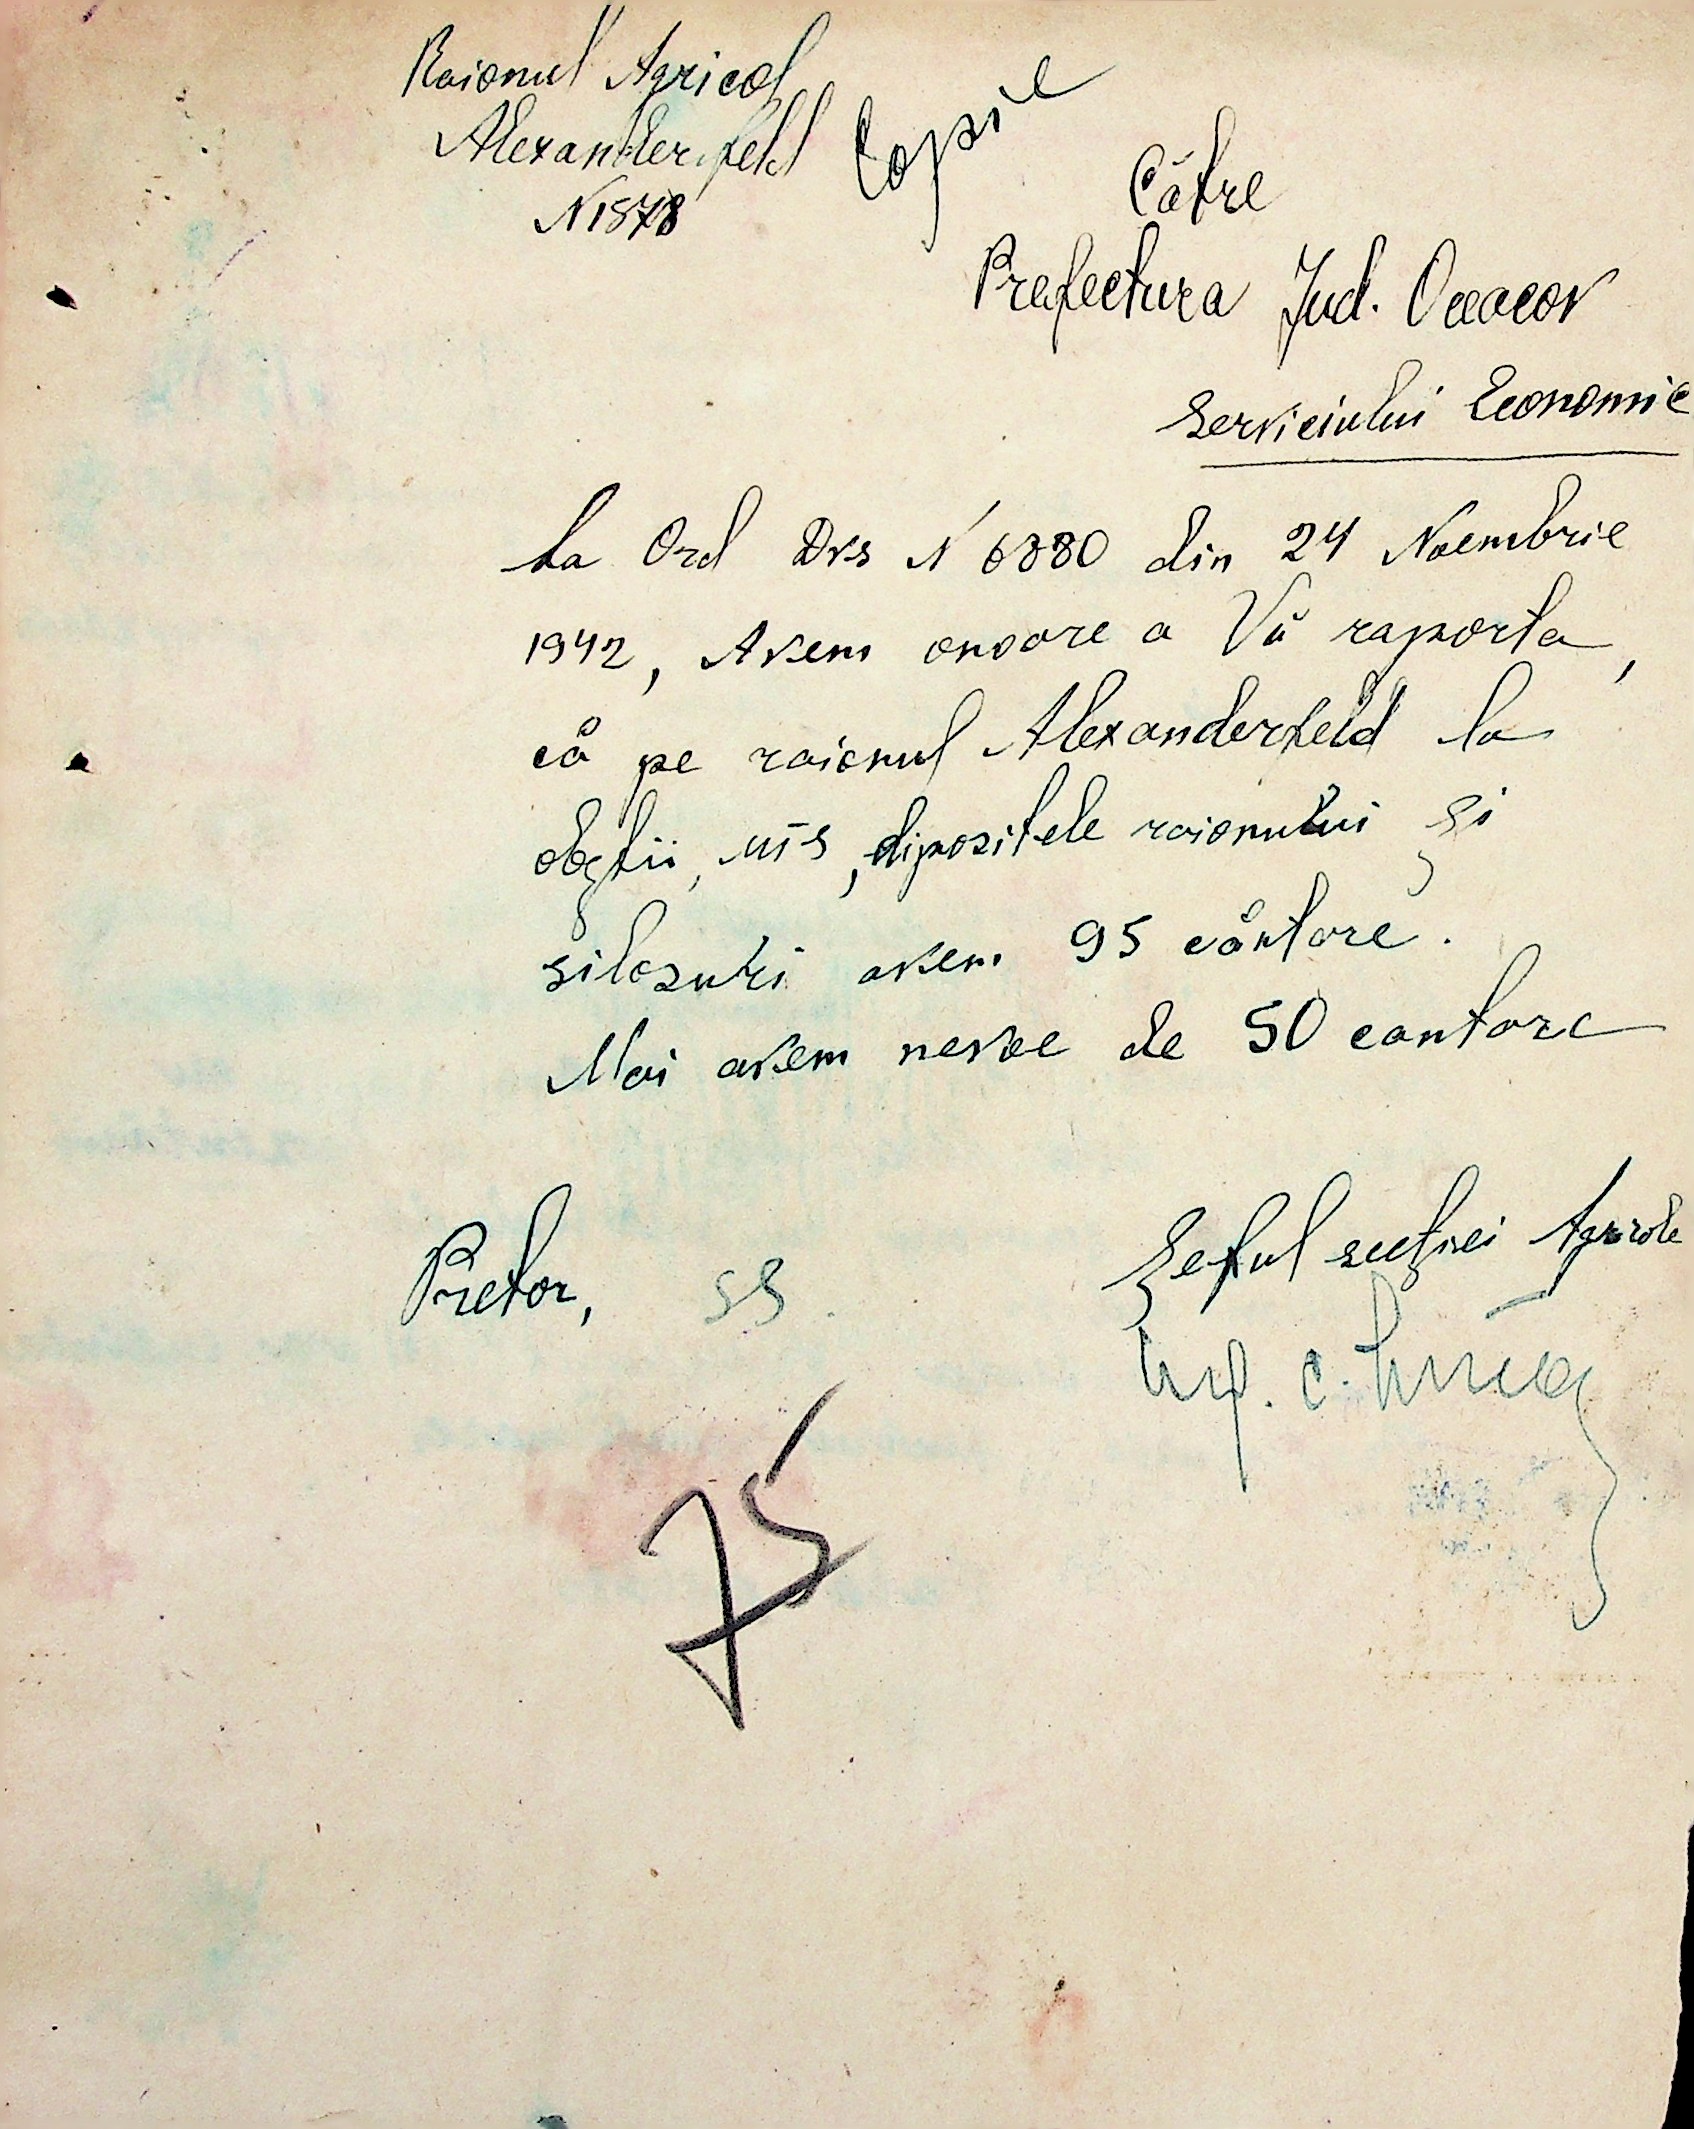 Raionul Agricol
Alexanderfeld
N 1878
Copie
Către
Prefectura Jud. Oceacov
Serviciului Economic
La Ord Dvs N 6880 din 24 Noembrie
1942, Avem onoare a Vă raporta,
că pe raionul Alexanderfeld la
obștii, MTS, dipozitele raionului și
silozuri avem 95 căntare.
Mai avem nevoe de 50 cantare
Pretor, SS
Șeful secției Agricole
C.
75